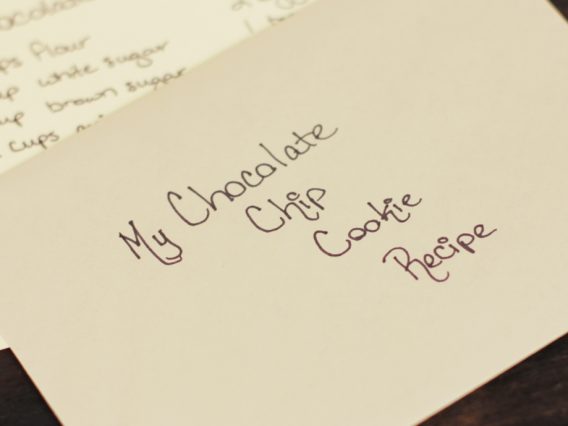 flour
white sugar
brown sugar
cups
My Chocolate
Chip
Cookie
Recipe